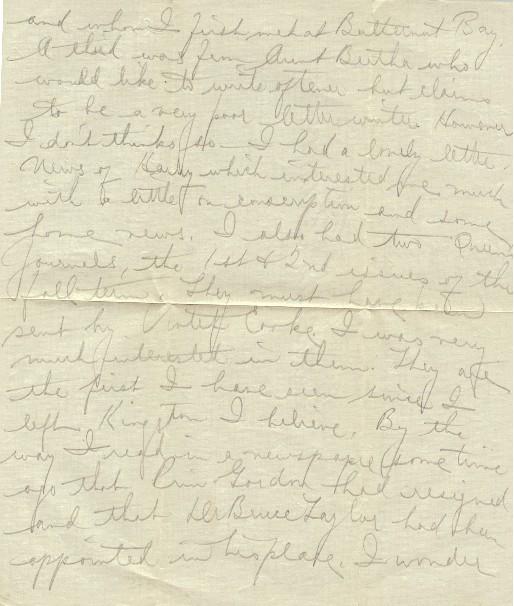 and whom I first met at Butternut Bay.
A third was from Aunt Bertha who
would like to write oftener but claims
to be a very poor letter writer. However
I don't think so - I had a lovely letter.
News of Harry which interested me much
with a little on conscription and some
home news. I also had two Queens
Journals, the 1st & 2nd issues of the
fall term. They must have been
sent by Cooke. I was very
much interested in them. They are
the first I have seen since I
left Kingston I believe. By the
way I read in a newspaper some time
ago that Prin Gordon had resigned
and that Dr Bruce Taylor had been
appointed in his place. I wonder